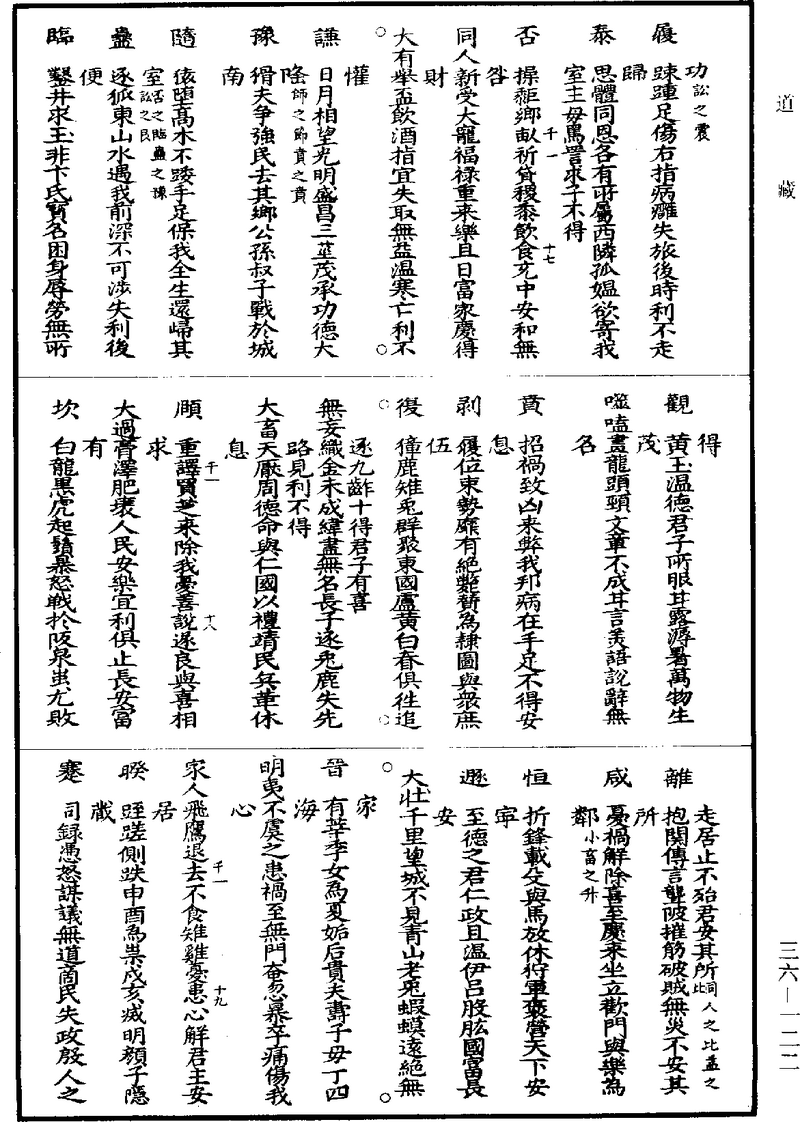 道藏
功訟之震
履 踈踵足傷右指病癰失旅後時利不走
歸
泰 思體同恩各有所屬西隣孤媼欲寄我
室主母罵詈求子不得
否 操耜鄉畝祈貸稷黍飲食充中安和無
咎
同人新受大寵福祿重來樂且日富家慶得
財
大有舉盃飲酒指宜失取無益溫寒亡利不
懽
謙 日月相望光明盛昌三莖茂承功德大
隆師之節賁之賁
豫 猾夫争強民去其鄉公孫叔子戰於城
南
隨 依堕高木不踒手足保我全生還歸其
室否之臨蠱之豫訟之艮
蠱 逐狐東山水遇我前深不可涉失利後
便
臨 鑿井求玉非卞氏寳名困身辱勞無所
得
觀 黄玉温德君子所服甘露溽暑萬物生
茂
噬嗑畫龍頭頸文章不成甘言美語說辭無
名
賁 招禍致凶来弊我邦病在手足不得安
息
剥 履位東勢靡有絶斃贅為隸圖與衆庶
伍
復 獐鹿雉兎群聚東國盧黄白脊俱往追
逐九齚十得君子有喜
無妄織金未成緯畫無名長子逐兎鹿失先
路見利不得
大畜天厭周德命與仁國以禮靖民兵革休
息
頤 重譯貢芝来除我憂善說遂良與喜相
求
大過膏澤肥壤人民安樂宜利俱止長安富
有
坎 白龍黒虎起鬚暴怒戰扵阪泉蚩尤敗
走居止不殆君安其所同人之比蠱之比
離 抱關傳言聾跛摧筋破賊無災不安其
所
咸 憂禍解除喜至慶来坐立歡門與樂為
鄰小畜之升
恒 折鋒載殳輿馬放休狩軍褒營天下安
寕
遯 至德之君仁政且溫伊吕股肱國富長
安
大壮千里望城不見青山老兎蝦蟆遠絶無
家
晉 有莘季女為夏姤后貴夫壽子母丁四
海
明夷不虞之患禍至無門奄忽暴卒痛傷我
心
家人飛鷹退去不食雉雞憂患心解君主安
居
睽 䟡蹉側跌申酉為祟戌亥滅明顔子隠
藏
蹇 司録憑怒謀議無道商民失政殷人之
千一
十七
千一
十八
千一
十九
三六—一二二